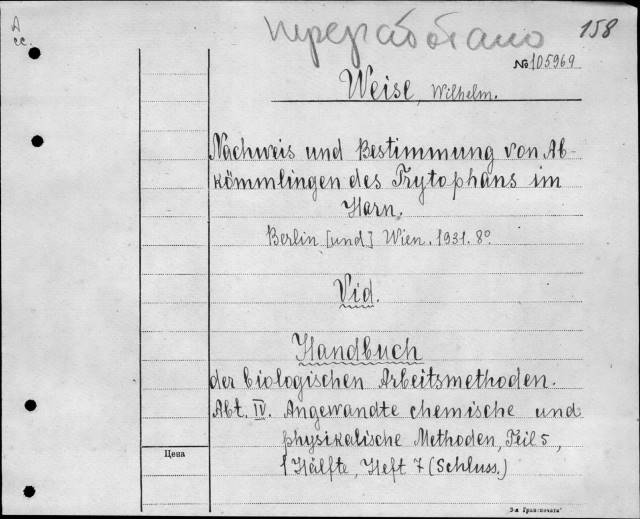 A
cc.
переработано
158
№ 105969
Weise, Wilhelm.
Nachweis und Bestimmung von Ab-
kömmlingen des Trytophans im
Harn.
Berlin [und] Wien. 1931. 8º.
Vid.
Handbuch
der biologischen Arbeitsmethoden.
Abt. IV. Angewandte chemische und
physikalische Methoden, Teil 5,
1 Hälfte, Heft 7 (Schluss.)
Цена